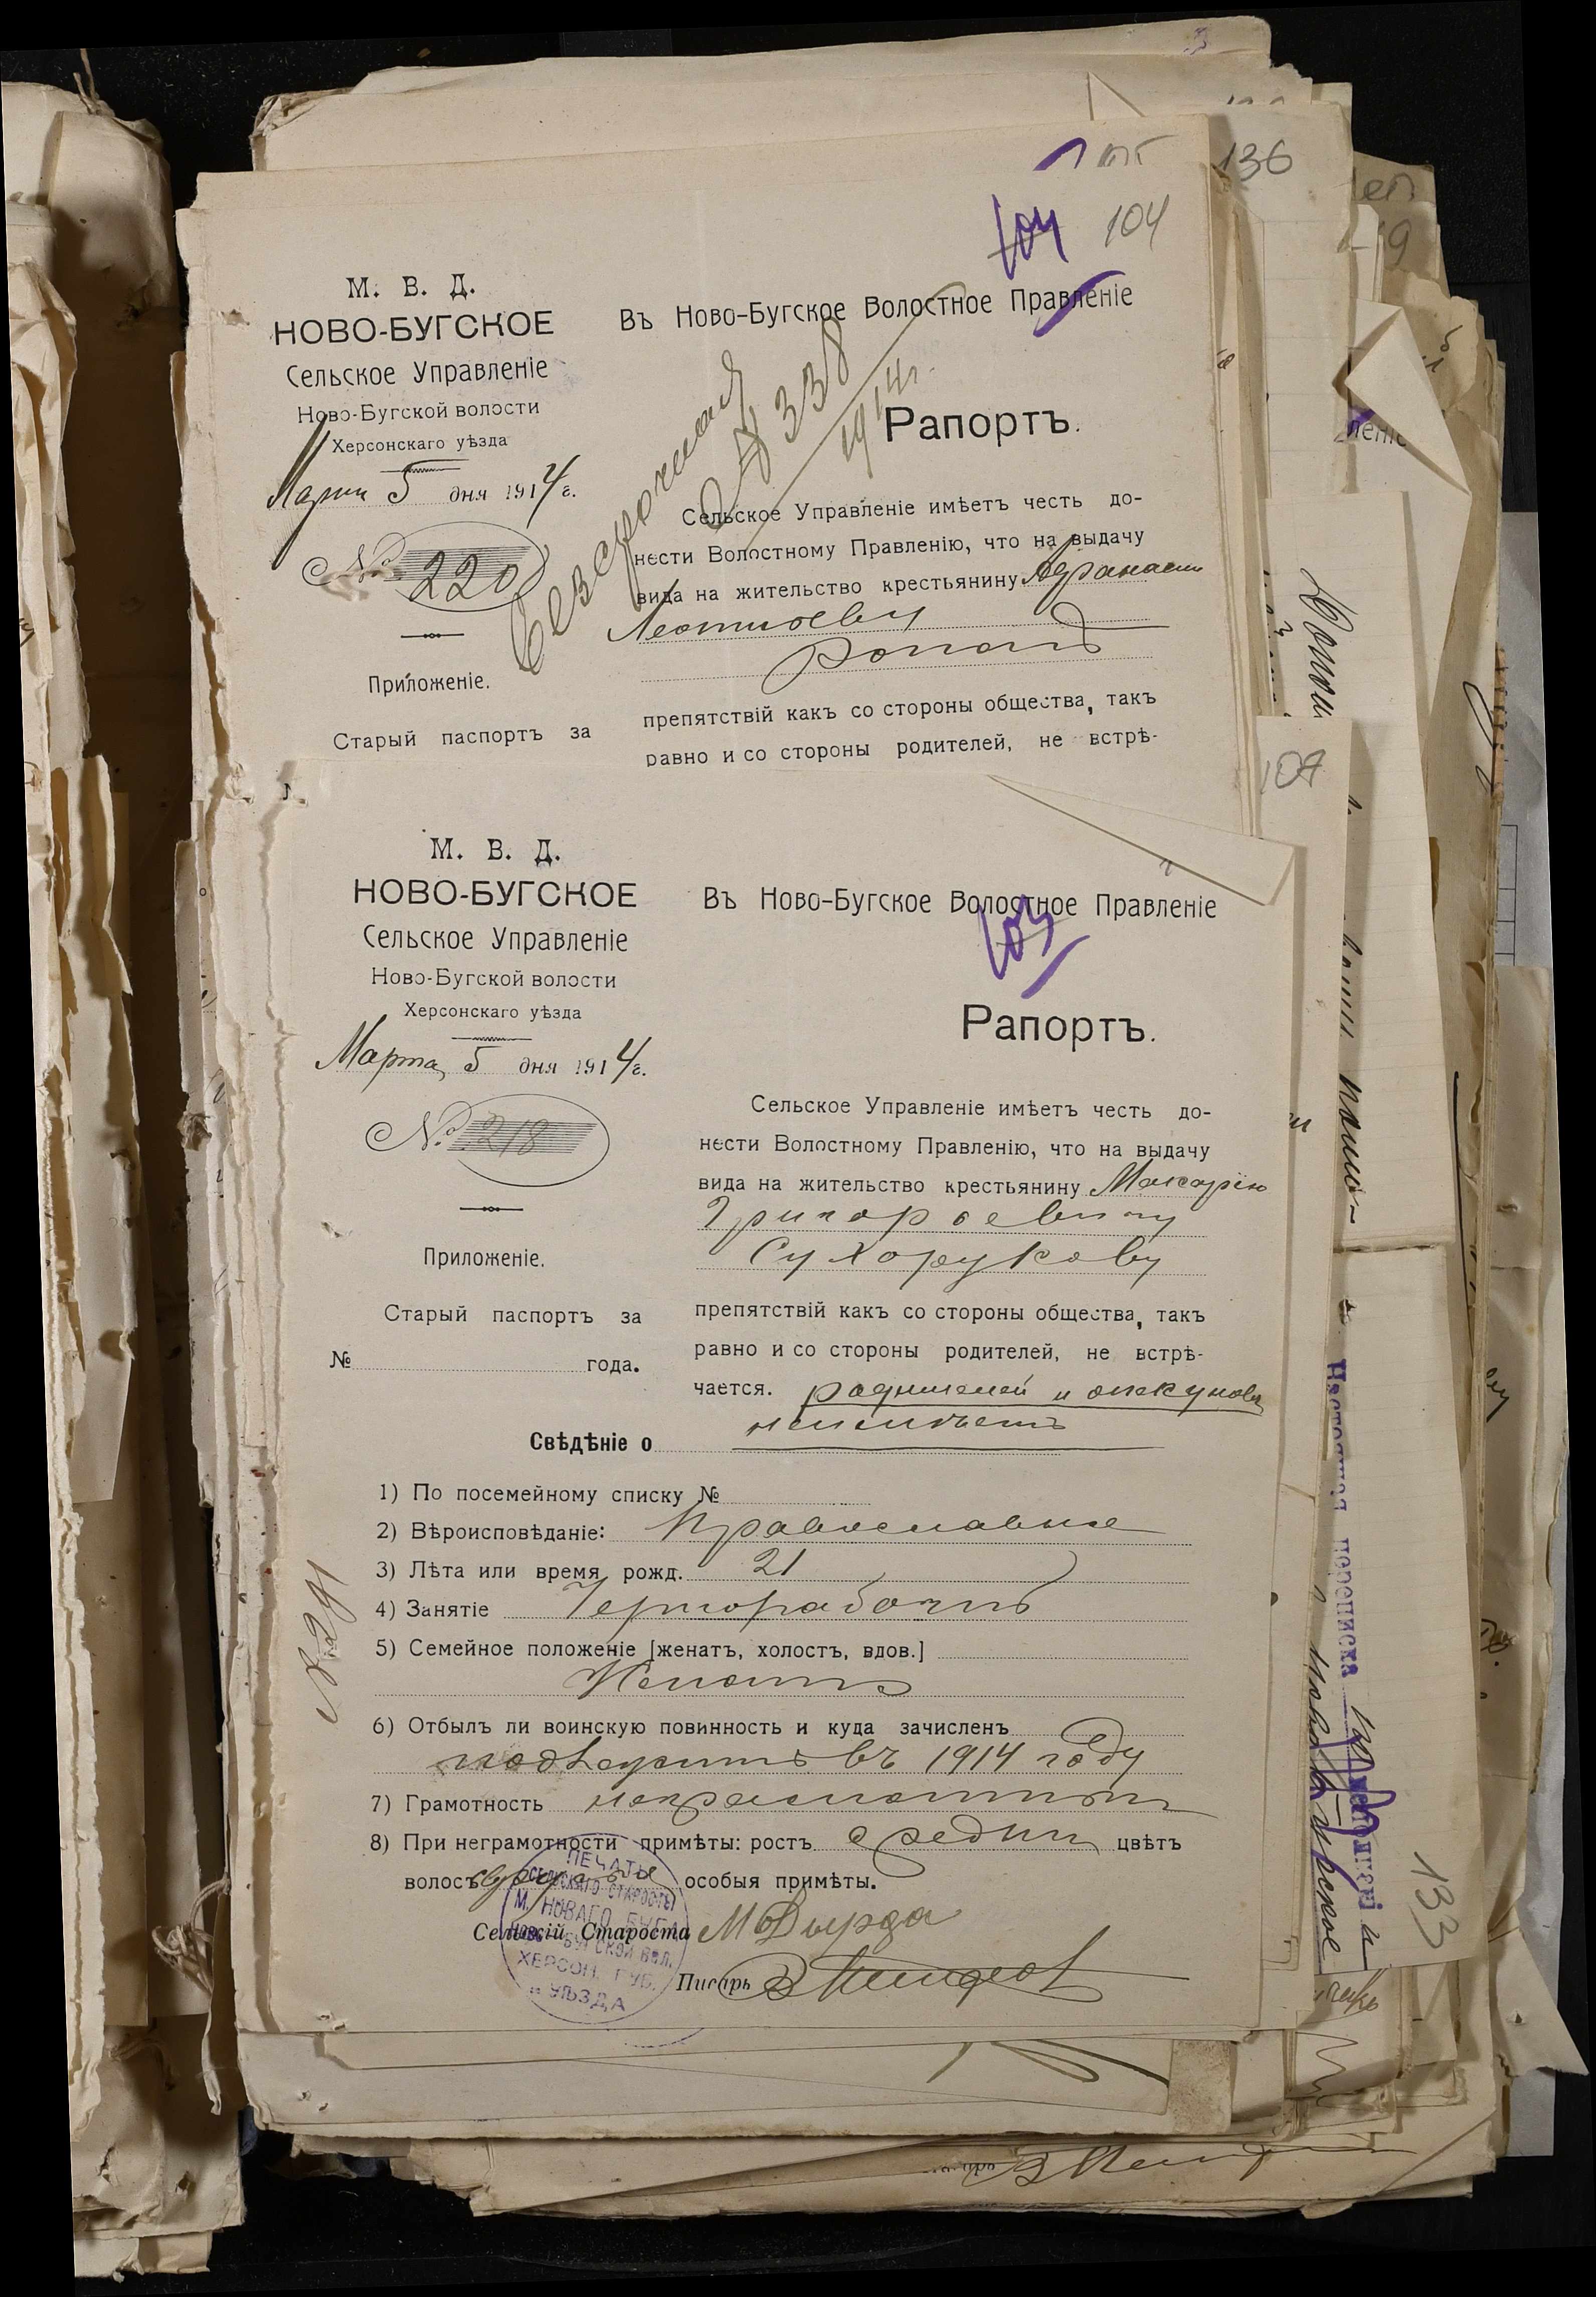 136
104
104
М. В. Д.
НОВО-БУГСКОЕ
Сельское Управленіе
Ново-Бугской волости
Херсонскаго уѣзда
Марта 5 дня 1914 г.
№ 220
Приложеніе.
Старый паспортъ за
Въ Ново-Бугское Волостное Правленіе
Рапортъ.
338
1914 г.
Сельское Управленіе имѣетъ честь до-
нести Волостному Правленію, что на выдачу
вида на жительство крестьянину Афанасію
Леонтіеву
препятствій какъ со стороны общества, такъ
равно и со стороны родителей, не встрѣ-
107
М. В. Д.
НОВО-БУГСКОЕ
Сельское Управленіе
Ново-Бугской волости
Херсонскаго уѣзда
Марта 5 дня 1914 г.
№ 218
Приложеніе.
Старый паспортъ за
№ года.
Въ Ново-Бугское Волостное Правленіе
103
Рапортъ.
Сельское Управленіе имѣетъ честь до-
нести Волостному Правленію, что на выдачу
вида на жительство крестьянину Макарію
Григорьевичу
Сухорукову
препятствій какъ со стороны общества, такъ
равно и со стороны родителей, не встрѣ-
чается. родителей и опекуновъ
неимѣетъ
Свѣдѣніе о
1) По посемейному списку №
2) Вѣроисповѣданіе: Православное
3) Лѣта или время рожд. 21
4) Занятіе Чернорабочій
5) Семейное положеніе [женатъ, холостъ, вдов.]
Женатъ
6) Отбылъ ли воинскую повинность и куда зачисленъ
подлежитъ въ 1914 году
7) Грамотность неграмотный
8) При неграмотности примѣты: ростъ средній цвѣтъ
волосъ особыя примѣты.
Сельскій Староста М Дырда
Писарь
№ 291
ПЕЧАТЬ
СЕЛЬСКАГО СТАРОСТЫ
М. НОВАГО БУГА
НОВО-БУГСКОЙ ВОЛ.
ХЕРСОН. ГУБ.
И УѢЗДА
133